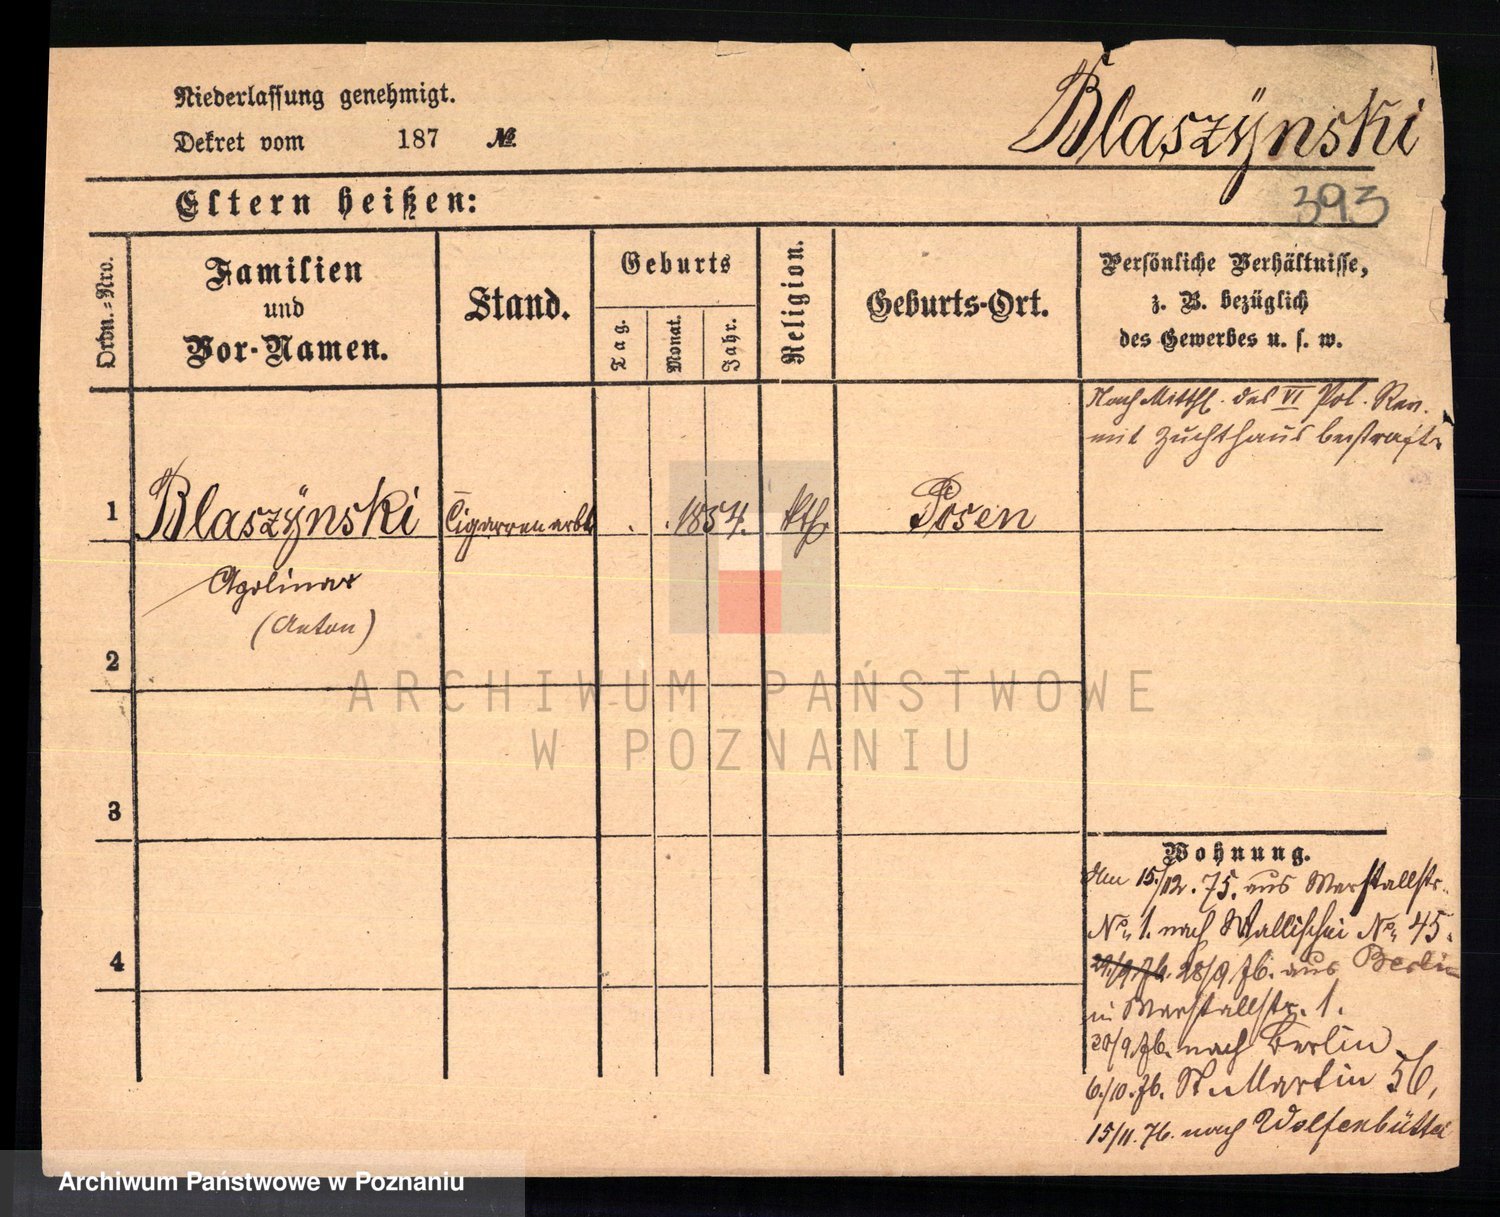 Niederlassung genehmigt.
Dekret vom 187 №
Blaszÿnski
393
Eltern heißen:
Ordn.-Nro.
Familien
und
Vor-Namen.
Stand.
Geburts
Tag.
Monat.
Jahr.
Religion.
Geburts-Ort.
Persönliche Verhältnisse,
z. B. bezüglich
des Gewerbes u. s. w.
Nach Mitthl. des VI Pol. Rev.
mit Zuchthaus bestraft.
1 Blaszÿnski Cigarrenarb. 1854. kth Posen
Apolinar
(Anton)
2
3
4
Wohnung.
Am 15./12. 75. aus Marstallstr.
No. 1. nach Wallischei No. 45.
29./9. 76. 28/9 76. aus Berlin
in Marstallstr. 1.
20/9 76. nach Berlin
6./10. 76. St. Martin 56,
15/11. 76. nach Wolfenbüttel
ARCHIWUM PAŃSTWOWE
W POZNANIU
Archiwum Państwowe w Poznaniu